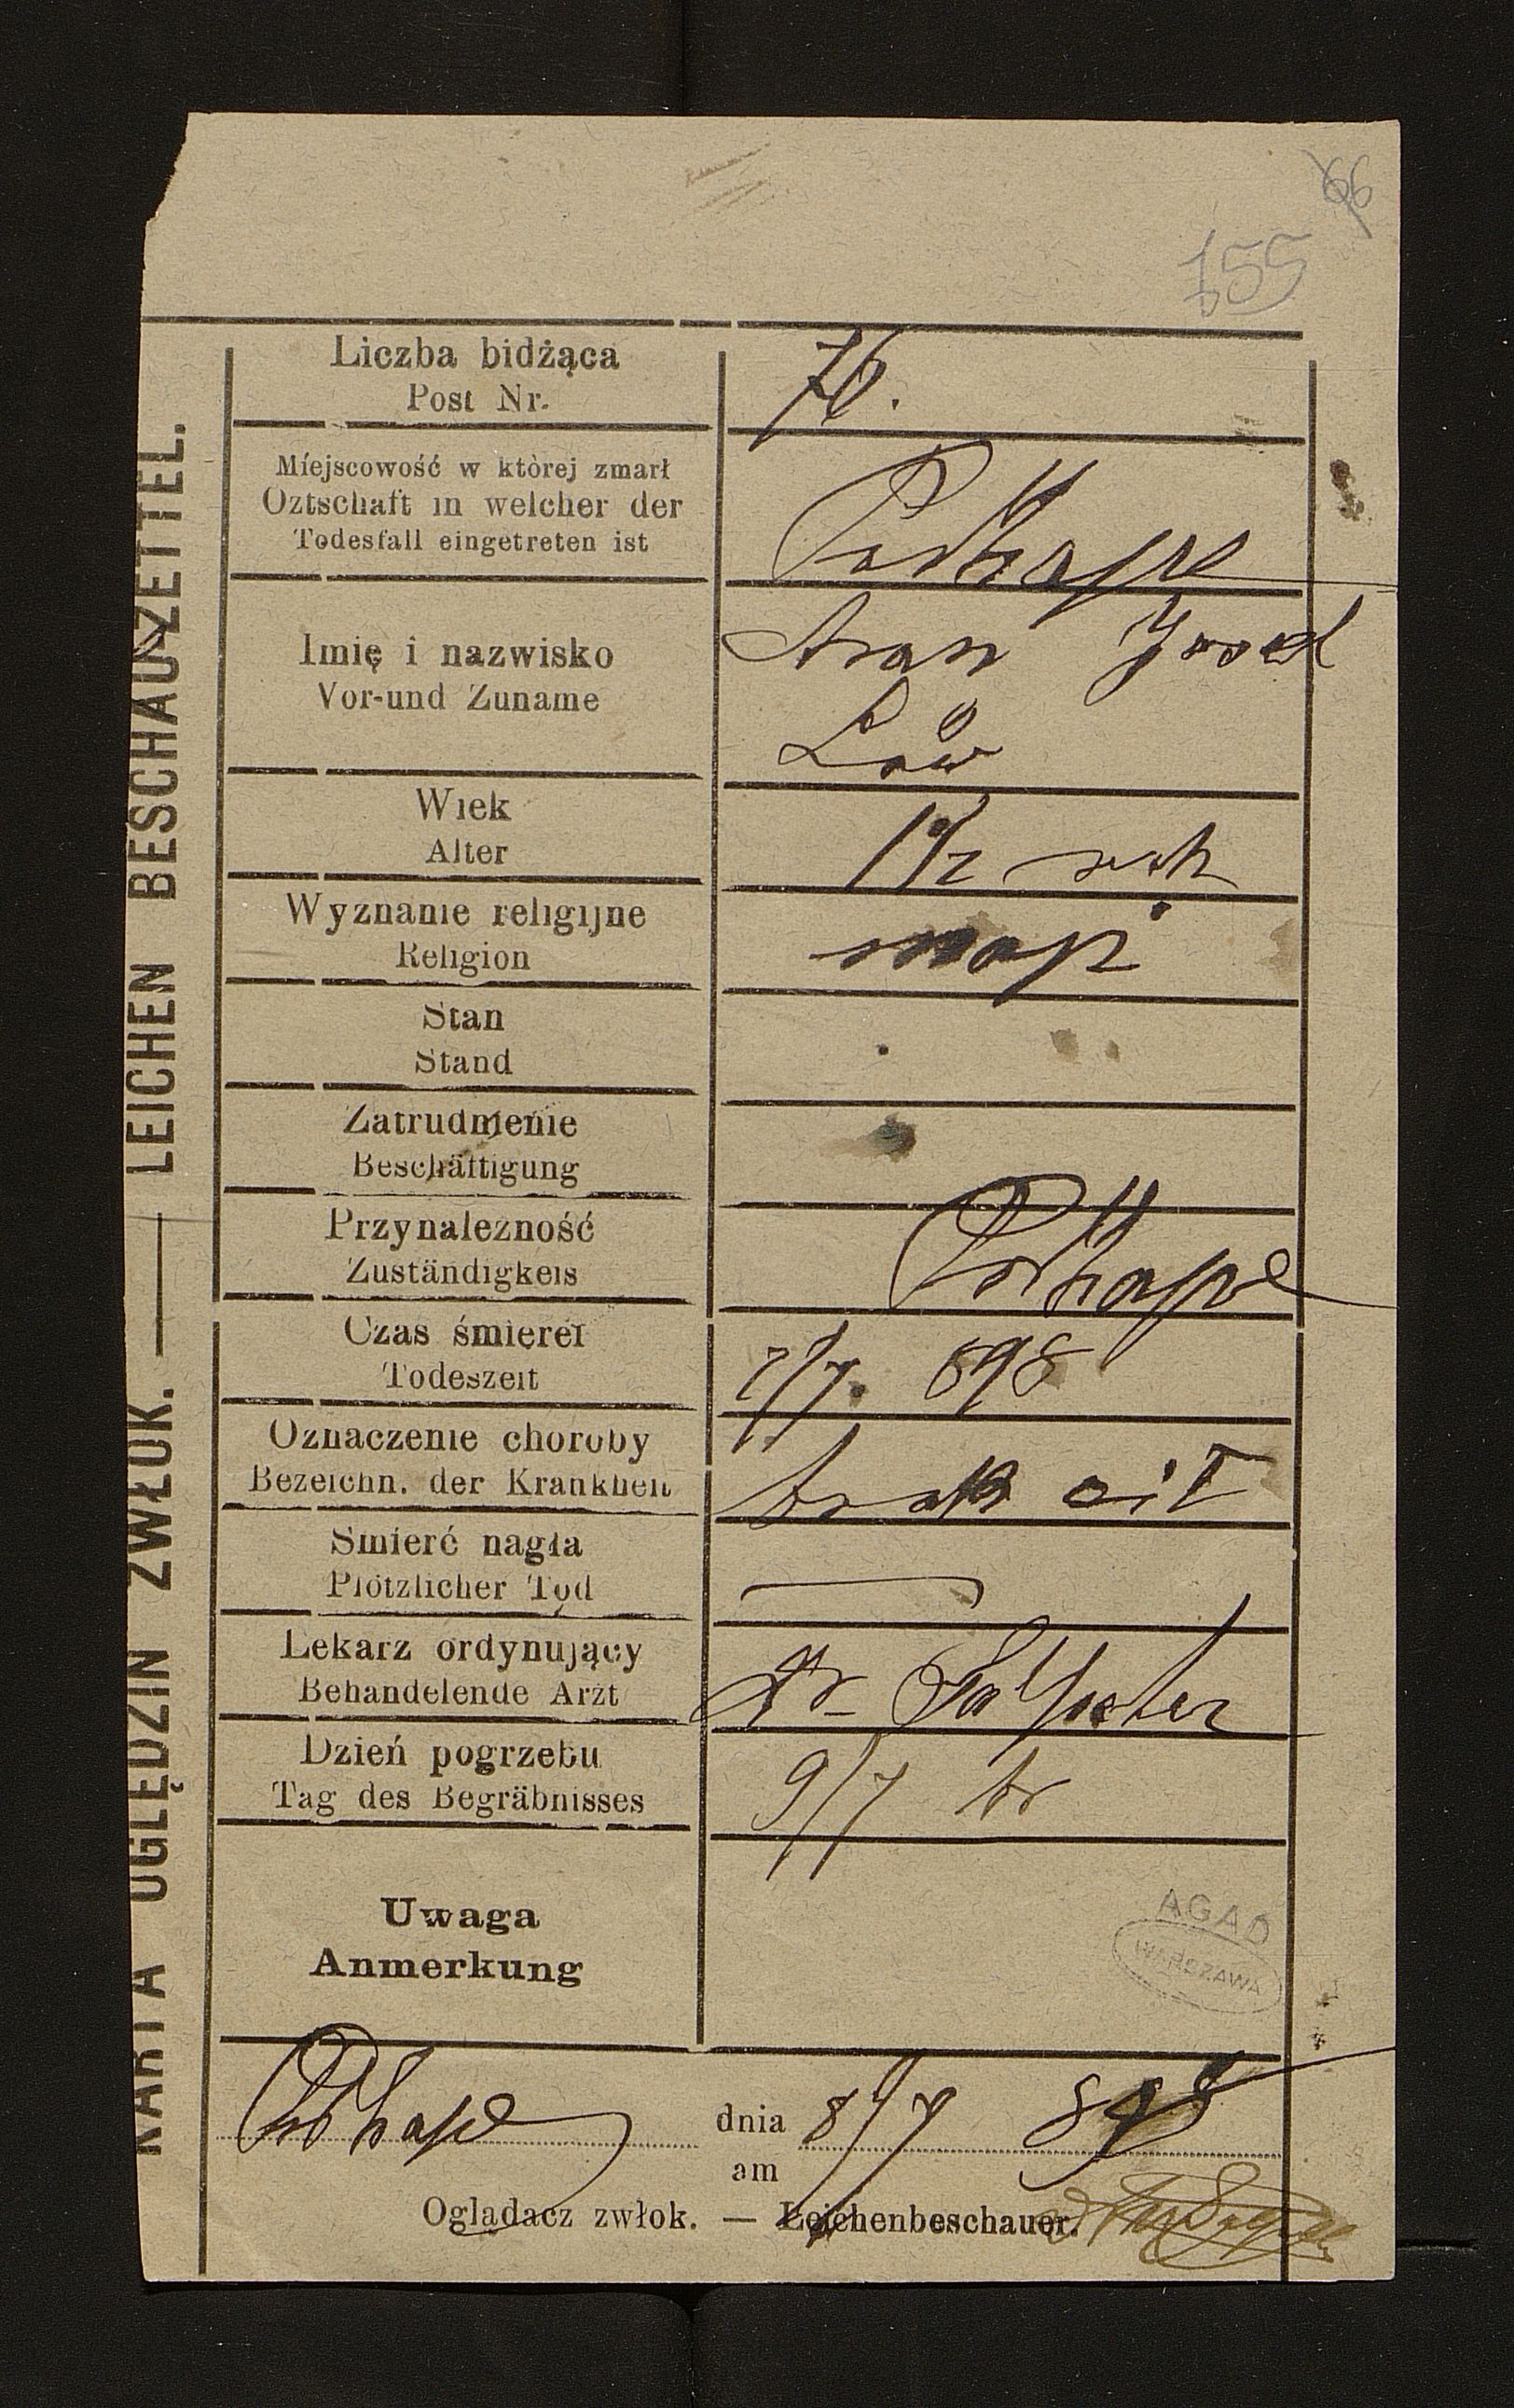 66
155
KARTA OGLĘDZIN ZWŁOK. — LEICHEN BESCHAUZETTEL.
Liczba bidżąca
Post Nr.
76.
Miejscowość w ktòrej zmarł
Oztschaft in welcher der
Todesfall eingetreten ist
Podhajce
Imię i nazwisko
Vor-und Zuname
Aron Josel
Löw
Wiek
Alter
1 1/2 rok
Wyznanie religijne
Religion
mojż
Stan
Stand
Zatrudnienie
Beschäftigung
Przynależność
Zuständigkeis
Podhajce
Czas śmierei
Todeszeit
7/7. 898
Oznaczenie choroby
Bezeichn. der Krankheit
brak sił
Smierć nagła
Plötzlicher Tod
—
Lekarz ordynujący
Behandelende Arzt
Dr
Dzień pogrzebu
Tag des Begräbnisses
9/7 br
Uwaga
Anmerkung
AGAD
WARSZAWA
Podhajce dnia 8/7 898
am
Oglądacz zwłok. — Leichenbeschauer.